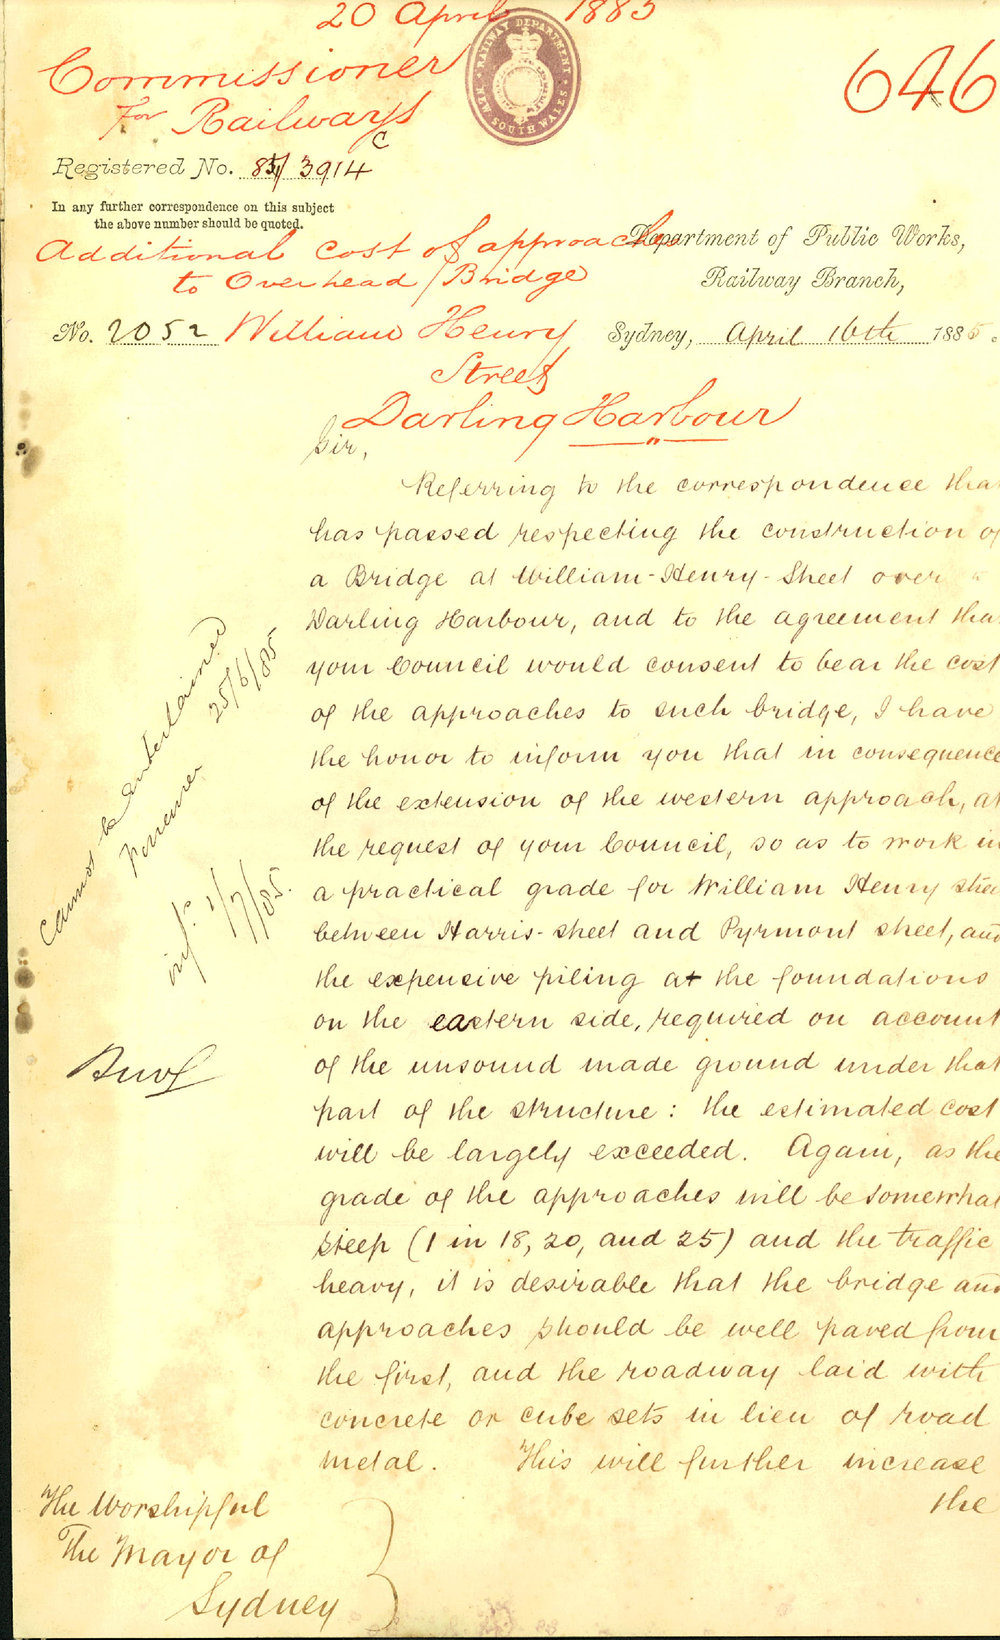 20 April 1885
RAILWAY DEPARTMENT
NEW SOUTH WALES
646
Commissioner
for Railways
C
Registered No. 85/3914
In any further correspondence on this subject
the above number should be quoted.
Additional cost of approaches
to Overhead Bridge
Department of Public Works,
Railway Branch,
No. 2052 William Henry
Sydney, April 16th 1885.
Street
Darling Harbour
Sir,
Referring to the correspondence tha
has passed respecting the construction of
a Bridge at William-Henry-Street over
Darling Harbour, and to the agreement tha
your Council would consent to bear the cost
of the approaches to such bridge, I have
the honor to inform you that in consequence
of the extension of the western approach, at
the request of your Council, so as to work in
a practical grade for William Henry stree
between Harris-street and Pyrmont street, and
the expensive piling at the foundations
on the eastern side, required on account
of the unsound made ground under that
part of the structure: the estimated cost
will be largely exceeded. Again, as the
grade of the approaches will be somewhat
steep (1 in 18, 20, and 25) and the traffic
heavy, it is desirable that the bridge and
approaches should be well paved from
the first, and the roadway laid with
concrete or cube sets in lieu of road
metal. This will further increase
the
Cannot be Entertained
25/6/85
inf. 1/7/85.
The Worshipful
The Mayor of
Sydney